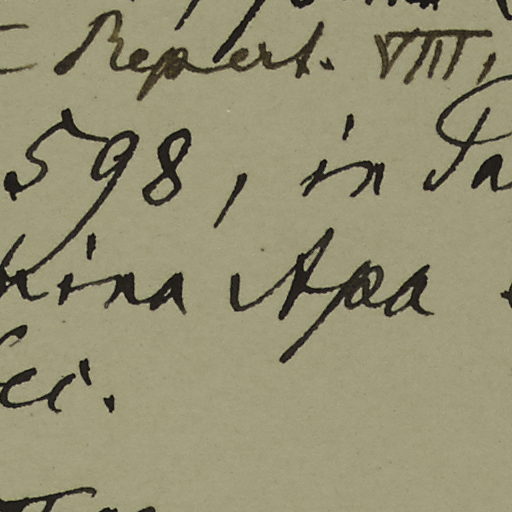 = Repert. VIII,
598, in Pa
hina Apa
lei.